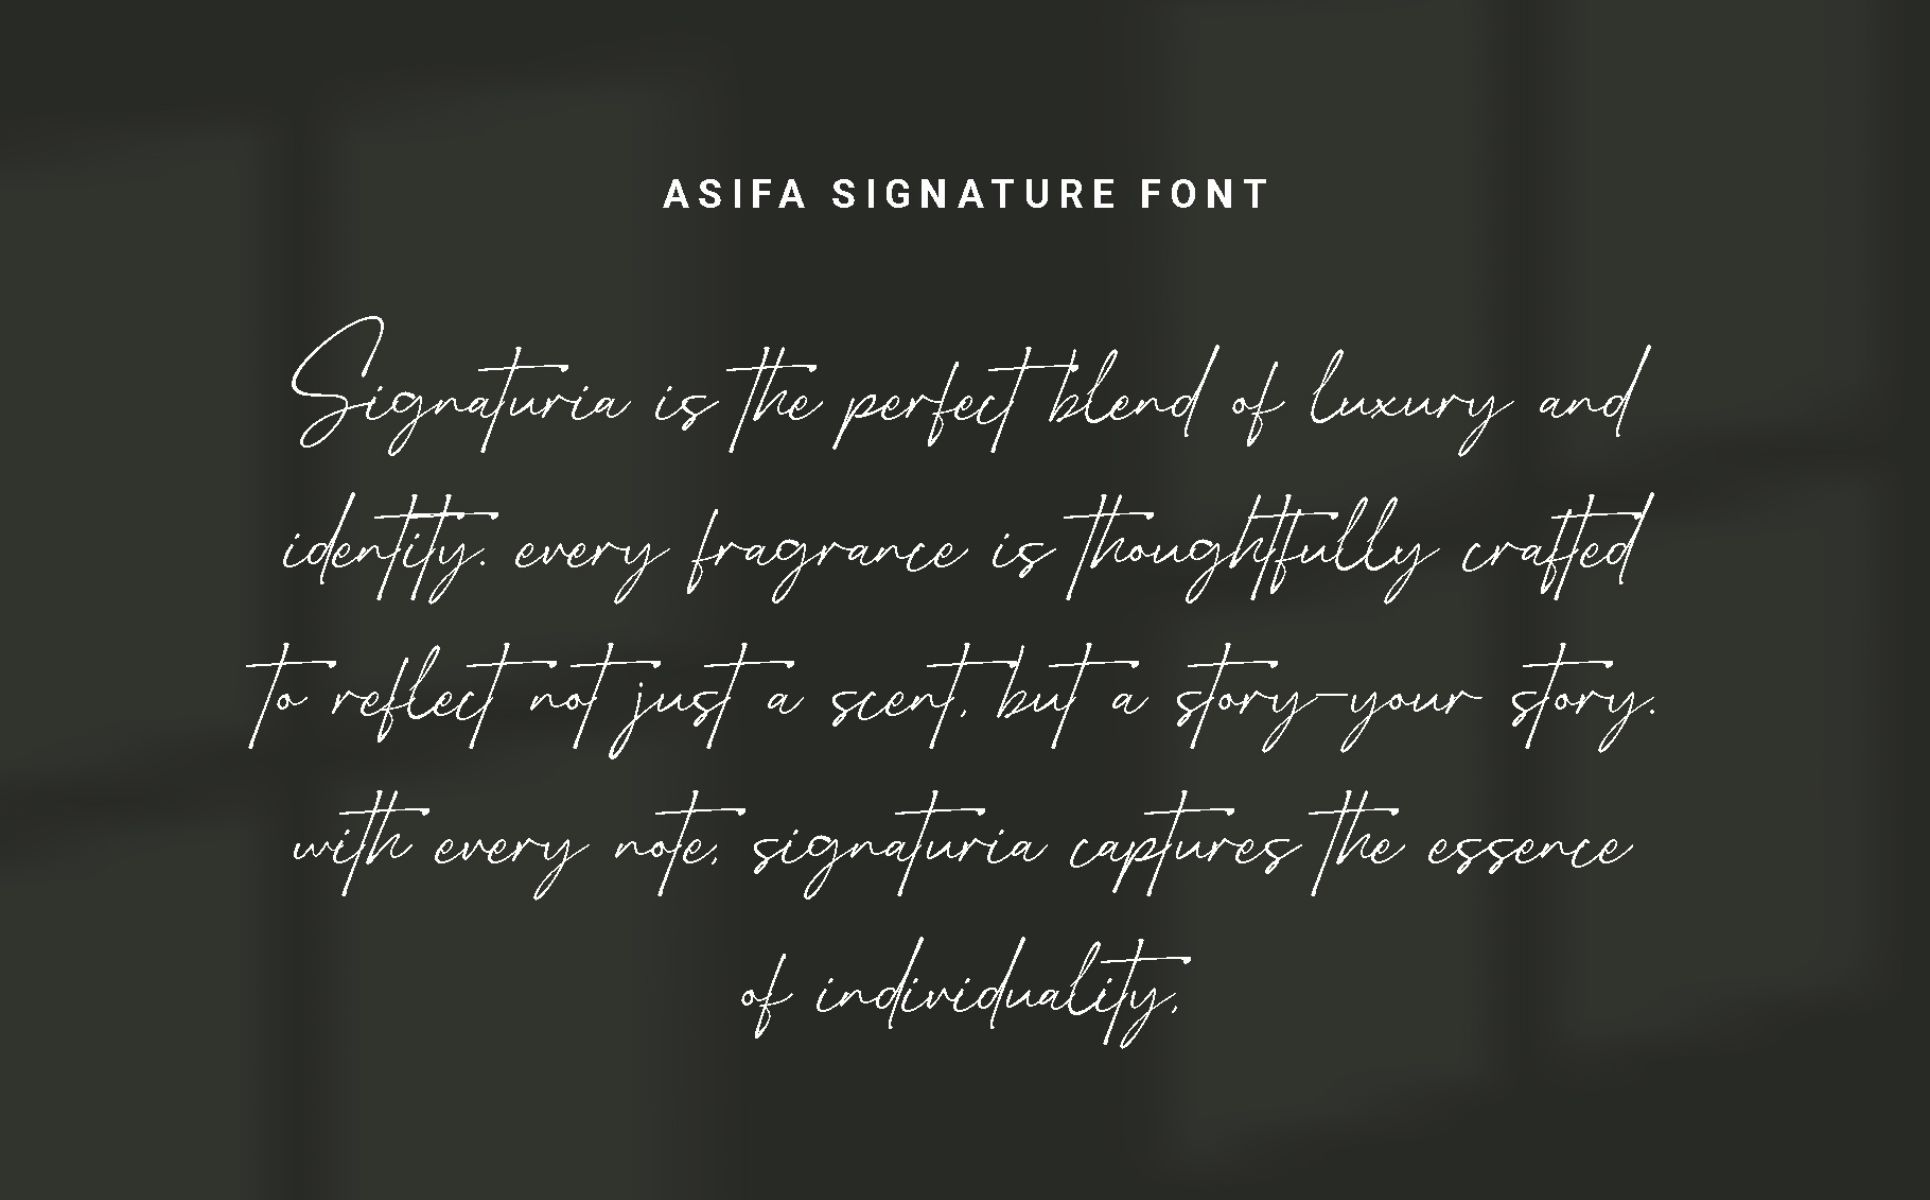 ASIFA SIGNATURE FONT
Signaturia is the perfect blend of luxury and
identity. every fragrance is thoughtfully crafted
to reflect not just a scent, but a story-your story.
with every note, signaturia captures the essence
of individuality,